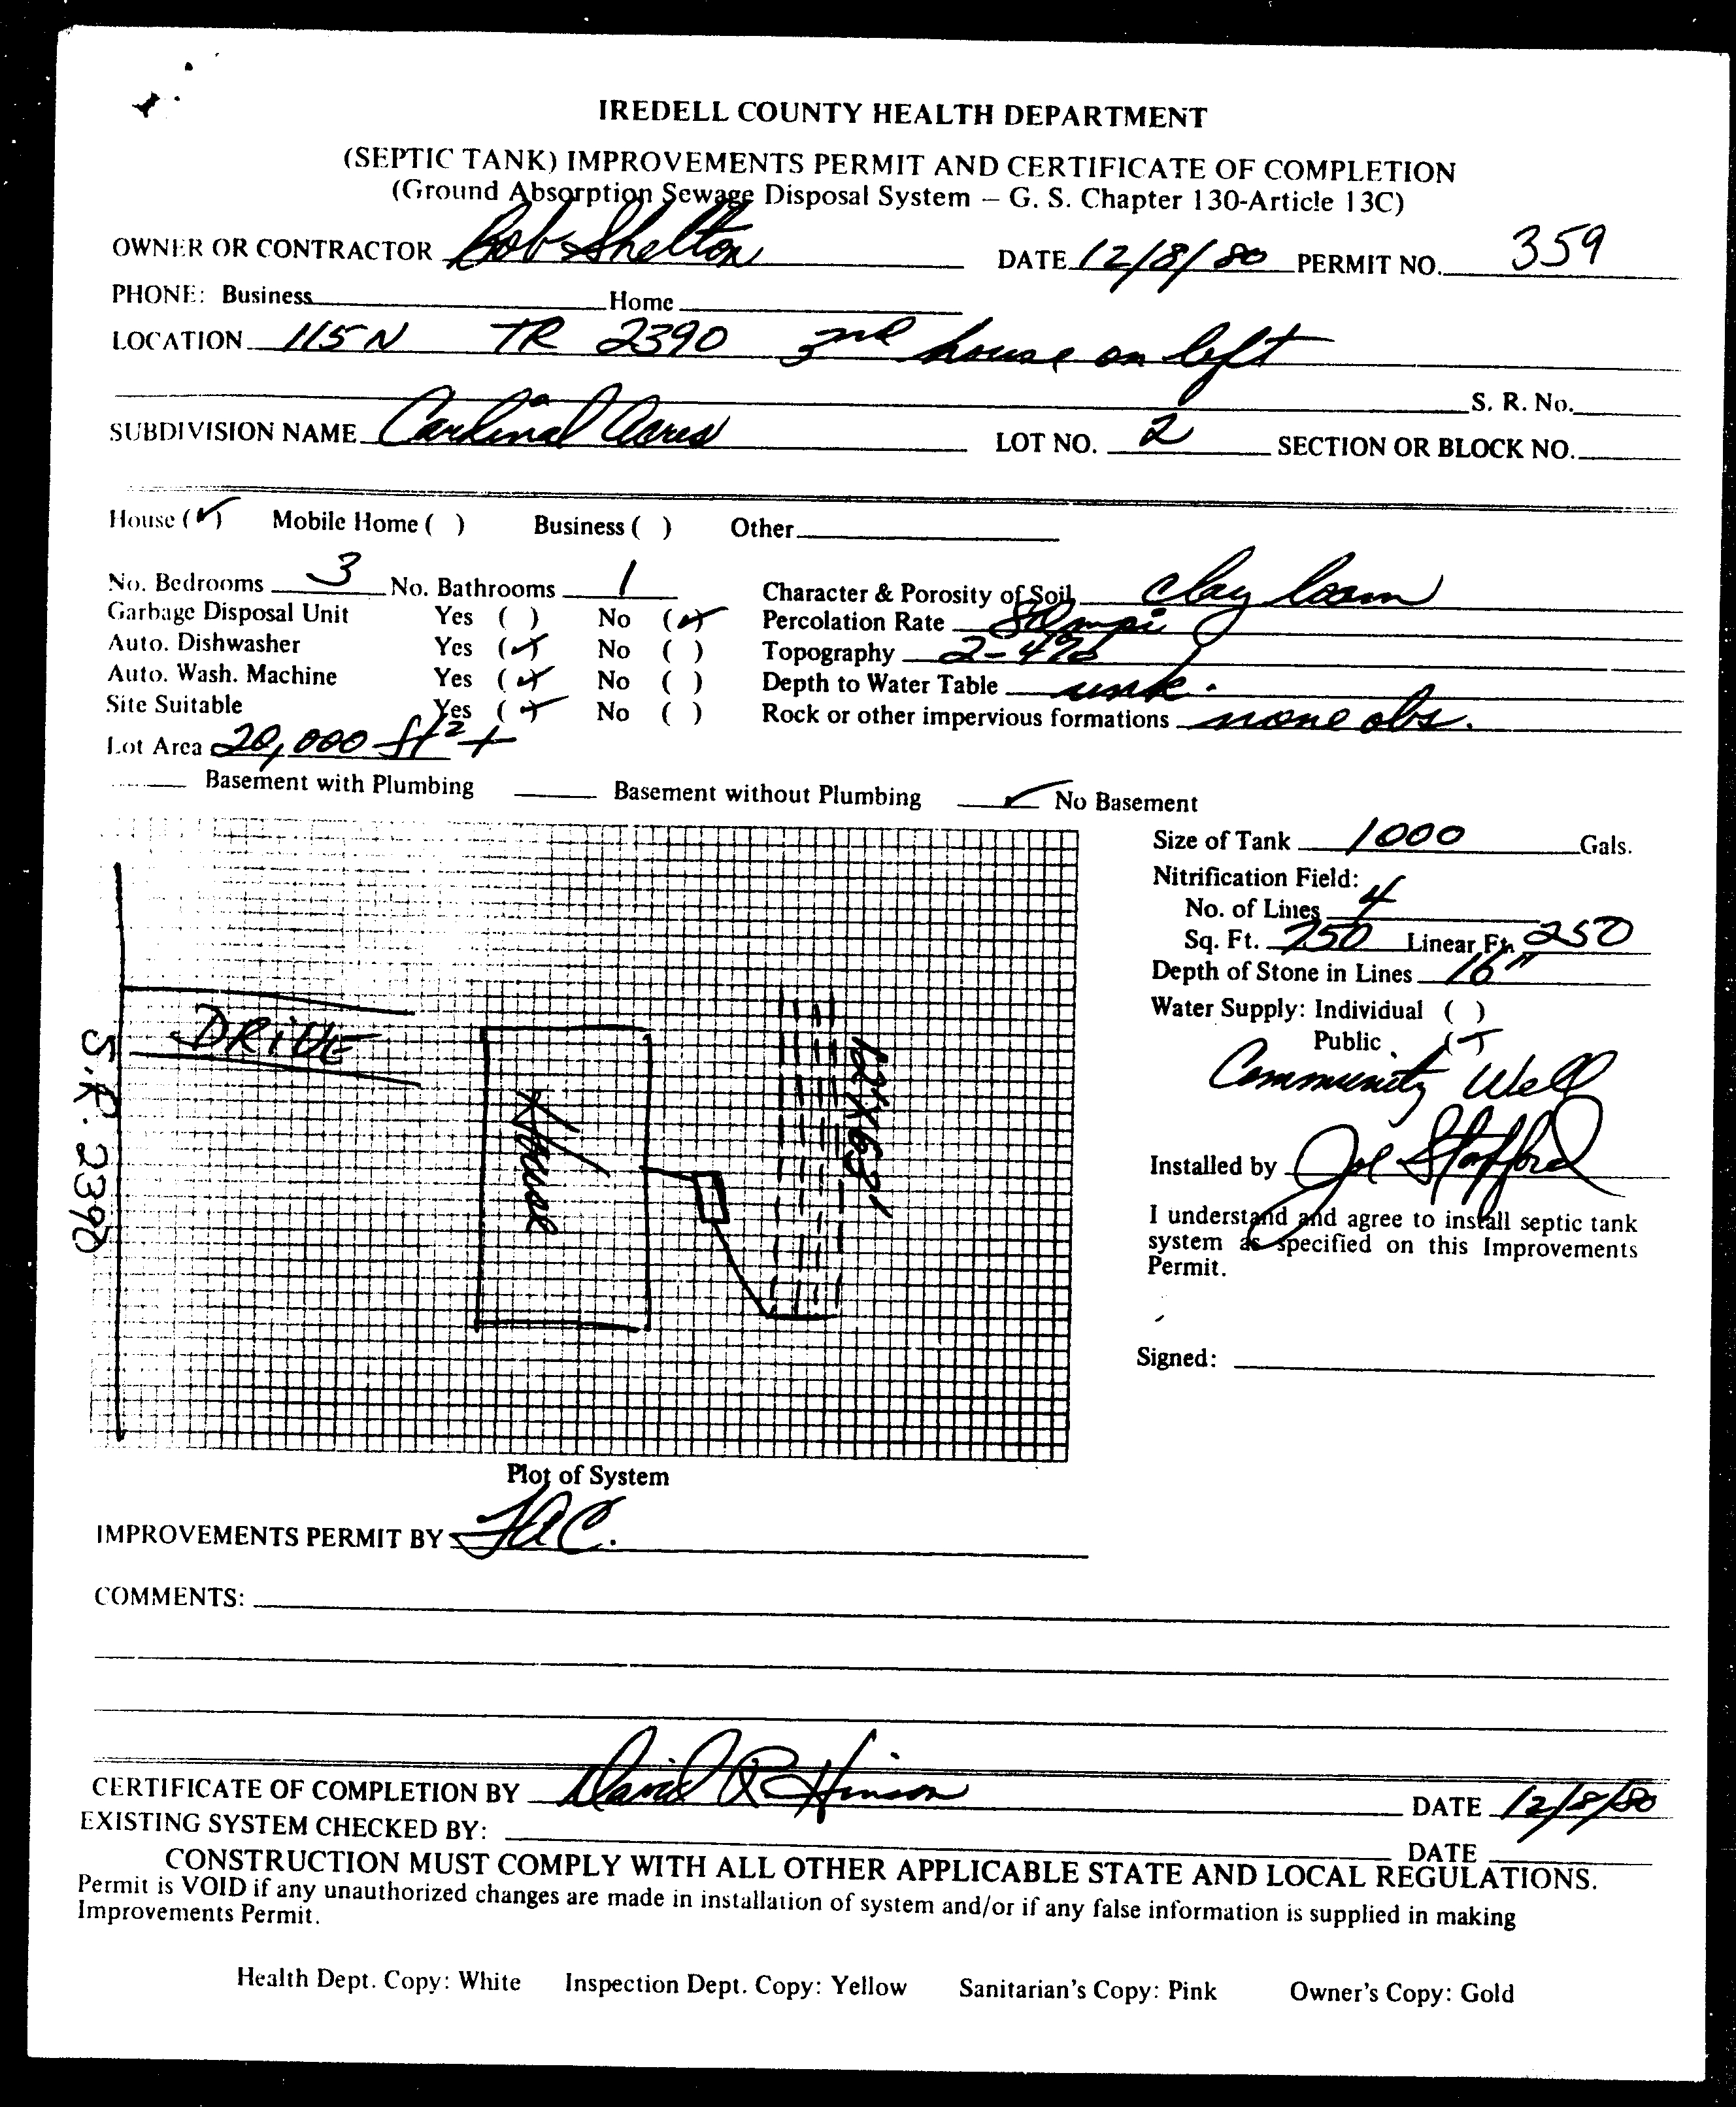 IREDELL COUNTY HEALTH DEPARTMENT
(SEPTIC TANK) IMPROVEMENTS PERMIT AND CERTIFICATE OF COMPLETION
(Ground Absorption Sewage Disposal System – G. S. Chapter 130-Article 13C)
OWNER OR CONTRACTOR Bob Shelton DATE 12/8/80 PERMIT NO. 359
PHONE: Business Home
LOCATION 115 N TR 2390 2nd house on left
S. R. No.
SUBDIVISION NAME Cardinal Acres LOT NO. 2 SECTION OR BLOCK NO.
House (✓) Mobile Home ( ) Business ( ) Other
No. Bedrooms 3 No. Bathrooms 1 Character & Porosity of Soil clay loam
Garbage Disposal Unit Yes ( ) No (✓) Percolation Rate mpi
Auto. Dishwasher Yes (✓) No ( ) Topography 2-4%
Auto. Wash. Machine Yes (✓) No ( ) Depth to Water Table unk.
Site Suitable Yes (✓) No ( ) Rock or other impervious formations none obs.
Lot Area 20,000 ft2+
Basement with Plumbing Basement without Plumbing ✓ No Basement
Size of Tank 1000 Gals.
Nitrification Field:
No. of Lines 4
Sq. Ft. 750 Linear Ft. 250
Depth of Stone in Lines 16"
Water Supply: Individual ( )
Public (✓)
Community Well
Installed by Joe Stafford
I understand and agree to install septic tank
system as specified on this Improvements
Permit.
Signed:
S.R. 2390
DRIVE
House
12"X63'
Plot of System
IMPROVEMENTS PERMIT BY
COMMENTS:
CERTIFICATE OF COMPLETION BY David R Hinson DATE 12/8/80
EXISTING SYSTEM CHECKED BY: DATE
CONSTRUCTION MUST COMPLY WITH ALL OTHER APPLICABLE STATE AND LOCAL REGULATIONS.
Permit is VOID if any unauthorized changes are made in installation of system and/or if any false information is supplied in making
Improvements Permit.
Health Dept. Copy: White Inspection Dept. Copy: Yellow Sanitarian's Copy: Pink Owner's Copy: Gold